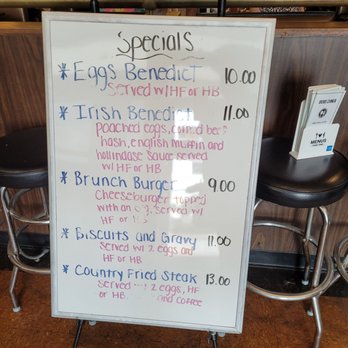 Specials
* Eggs Benedict 10.00
Served w/ HF or HB
* Irish Benedict 11.00
poached eggs, corned beef
hash, english muffin and
hollindase sauce served
w/ HF or HB
* Brunch Burger 9.00
Cheeseburger topped
with an served w/
HF or
* Biscuits and Gravy 11.00
Served w/ 2 eggs and
HF or HB
* Country Fried Steak 13.00
Served 2 eggs, HF
or HB and coffee
MENUS